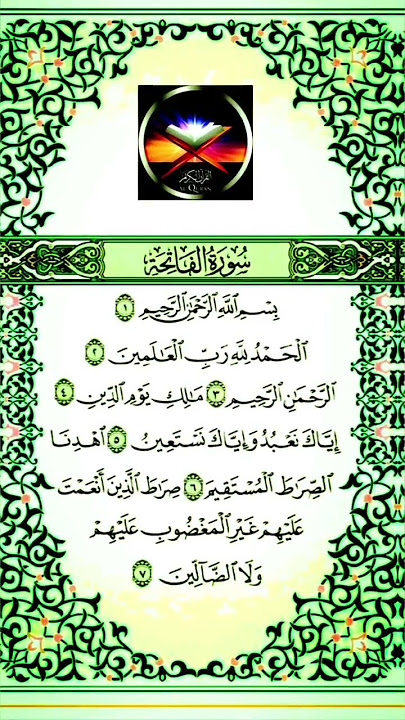 القرآن الكريم
AL QURAN
سُورَةُ الفَاتِحَةِ
بِسْمِ اللَّهِ الرَّحْمَٰنِ الرَّحِيمِ ١
الْحَمْدُ لِلَّهِ رَبِّ الْعَالَمِينَ ٢
الرَّحْمَٰنِ الرَّحِيمِ ٣ مَالِكِ يَوْمِ الدِّينِ ٤
إِيَّاكَ نَعْبُدُ وَإِيَّاكَ نَسْتَعِينُ ٥ اهْدِنَا
الصِّرَاطَ الْمُسْتَقِيمَ ٦ صِرَاطَ الَّذِينَ أَنْعَمْتَ
عَلَيْهِمْ غَيْرِ الْمَغْضُوبِ عَلَيْهِمْ
وَلَا الضَّالِّينَ ٧